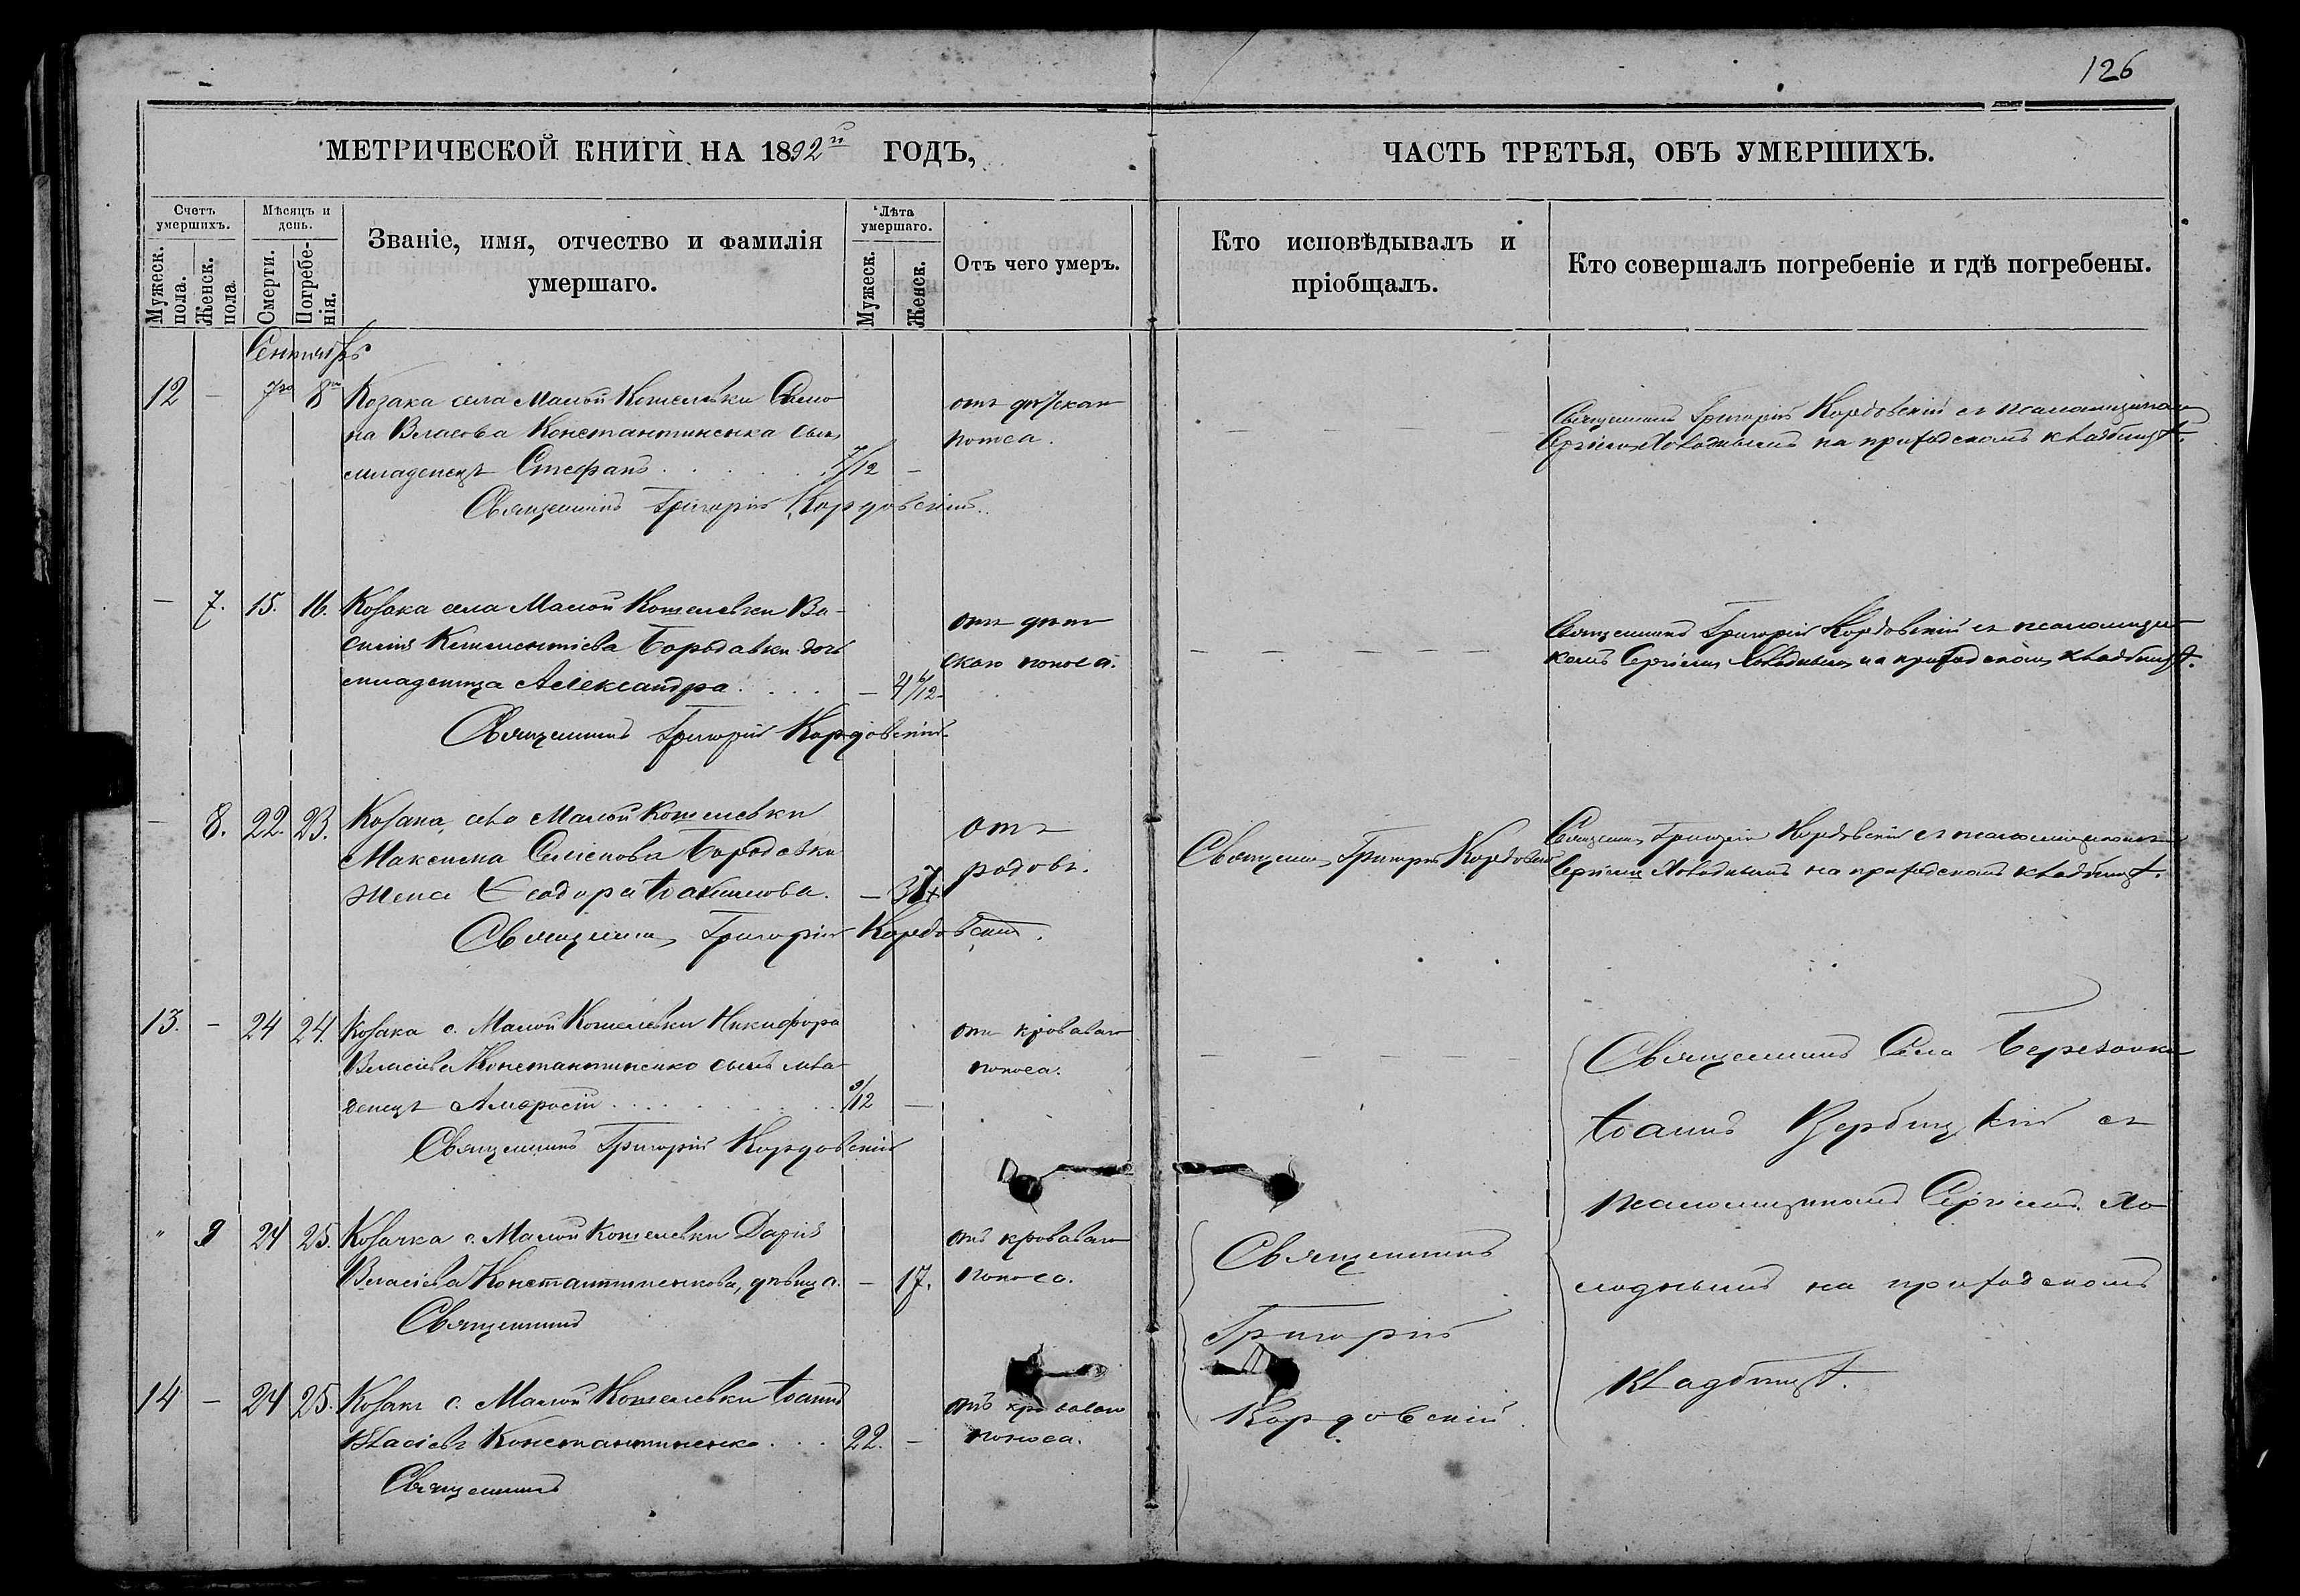 126
МЕТРИЧЕСКОЙ КНИГИ НА 1892й ГОДЪ,
ЧАСТЬ ТРЕТЬЯ, ОБЪ УМЕРШИХЪ.
Счетъ умершихъ.
Мужеск. пола.
Женск. пола
Мѣсяцъ и день.
Смерти.
Погребенія.
Званіе, имя, отчество и фамилія
умершаго.
Лѣта умершаго.
Мужеск.
Женск.
Отъ чего умеръ.
Кто исповѣдывалъ и
пріобщалъ.
Кто совершалъ погребеніе и гдѣ погребены.
Сентябрь
12 – 7го 8го Козака села Малой Кошелевки
на Власова Константиненка сынъ
младенецъ Стефанъ 7/12 –
Священникъ Григорій Кордовскій.
отъ дѣтскаго
поноса.
Священникъ Григорій Кордовскій съ псаломщикомъ
Сергіемъ Холоднымъ на приходскомъ кладбищѣ.
– 7. 15. 16. Козака села Малой Кошелевки Ва-
силія Климентіева Бородавки дочь
младеница Александра – 4/12
Священникъ Григорій Кордовскій
отъ дѣт
скаго поноса.
Священникъ Григорій Кордовскій съ псаломщи-
комъ Сергіемъ Холоднымъ на приходскомъ кладбищѣ.
– 8. 22. 23. Козака села Малой Кошелевки
Максима Бородавки
жена Іоакимова. – 37
Священникъ Григорій Кордовскій.
отъ
родовъ.
Священникъ Григорій Кордовскій
Священникъ Григорій Кордовскій съ псаломщикомъ
Сергіемъ Холоднымъ на приходскомъ кладбищѣ.
13. – 24 24. Козака с. Малой Кошелевки Никифора
Власіева Константиненко сынъ мла-
денецъ Амвросій 9/12 –
Священникъ Григорій Кордовскій
отъ кроваваго
поноса.
Священникъ села Березовки
Іоаннъ Вербицкій съ
псаломщикомъ Сергіемъ Хо
лоднымъ на приходскомъ
кладбищѣ.
" 9 24 25. Козачка с. Малой Кошелевки Дарія
Власіева Константиненкова, дѣвица. – 17.
Священникъ
отъ кроваваго
поноса.
Священникъ
Григорій
Кордовскій.
14 – 24 25. Козакъ с. Малой Кошелевки Іоаннъ
Власіевъ Константиненко 22. –
Священникъ
отъ кроваваго
поноса.